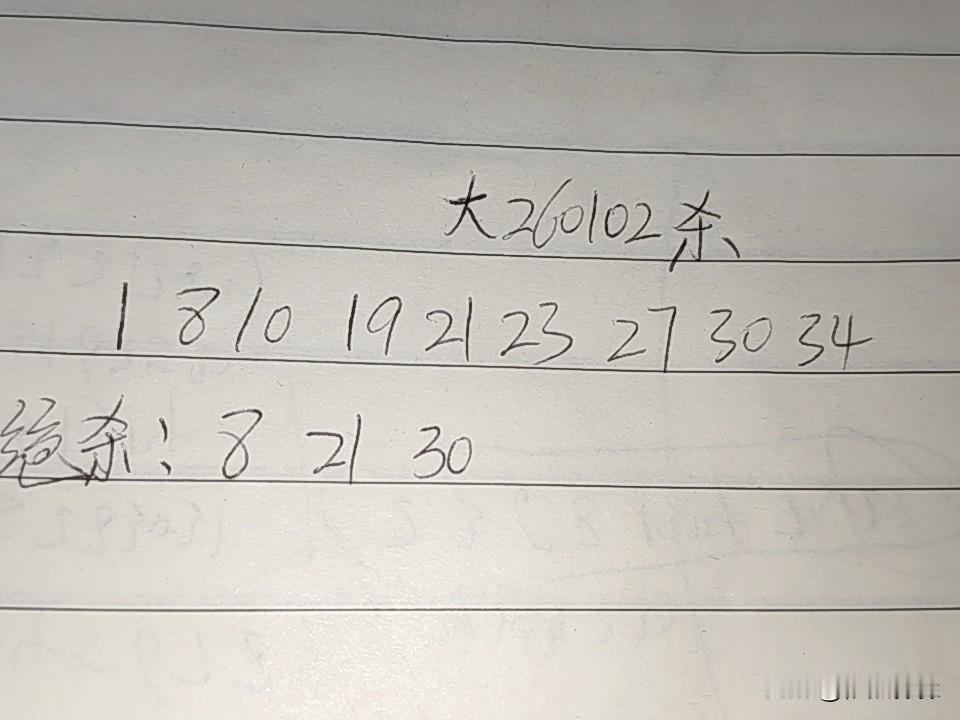 大260102杀
1 8 10 19 21 23 27 30 34
绝杀: 8 21 30